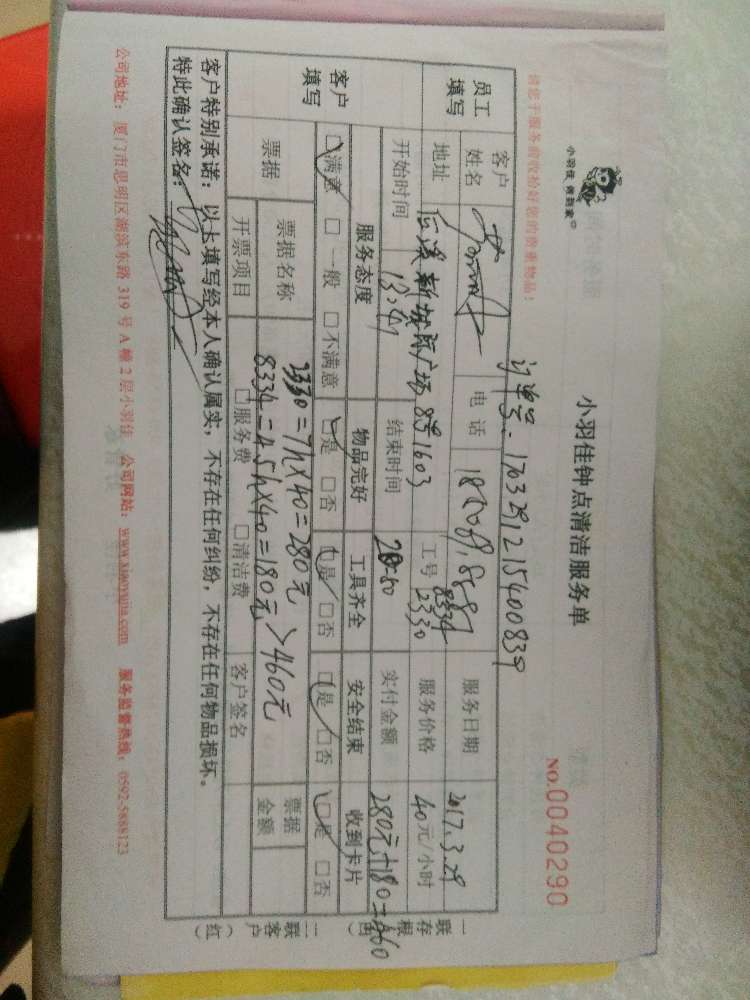 小羽佳 师到家
小羽佳钟点清洁服务单
NO.0040290
请您于服务前收拾好您的贵重物品！
订单号：170329121540083
员工填写
客户姓名
电话
服务日期 2017.3.29
地址 新城际广场8号1603
工号 8334 2330
服务价格 40元/小时
开始时间 13:
结束时间
实付金额 280元+180=460
客户填写
服务态度 物品完好 工具齐全 安全结束 收到卡片
□满意 □一般 □不满意 □是 □否 □是 □否 □是 □否 □是 □否
2330=7h×40=280元
8334=4.5h×40=180元 >460元
票据
票据名称
票据金额
开票项目 □服务费 □清洁费 客户签名
客户特别承诺：以上填写经本人确认属实，不存在任何纠纷，不存在任何物品损坏。
特此确认签名：
公司地址：厦门市思明区湖滨东路 319 号 A 幢 2 层小羽佳 公司网站：www.xiaoyujia.com 服务监督热线：0592-5888123
一联存根（白）
二联客户（红）